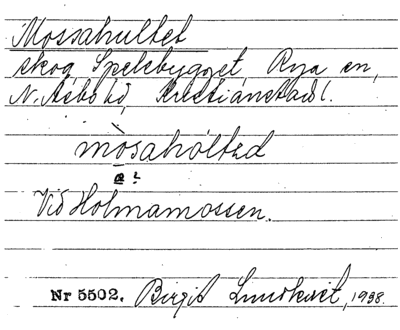 Mossahultet
skog, Spelebygget, Rya sn,
N. Åsbo hd, Kristianstads l.
mòsahóltəd
Vid Holmamossen.
Nr 5502. Birgit Lundkvist, 1938.